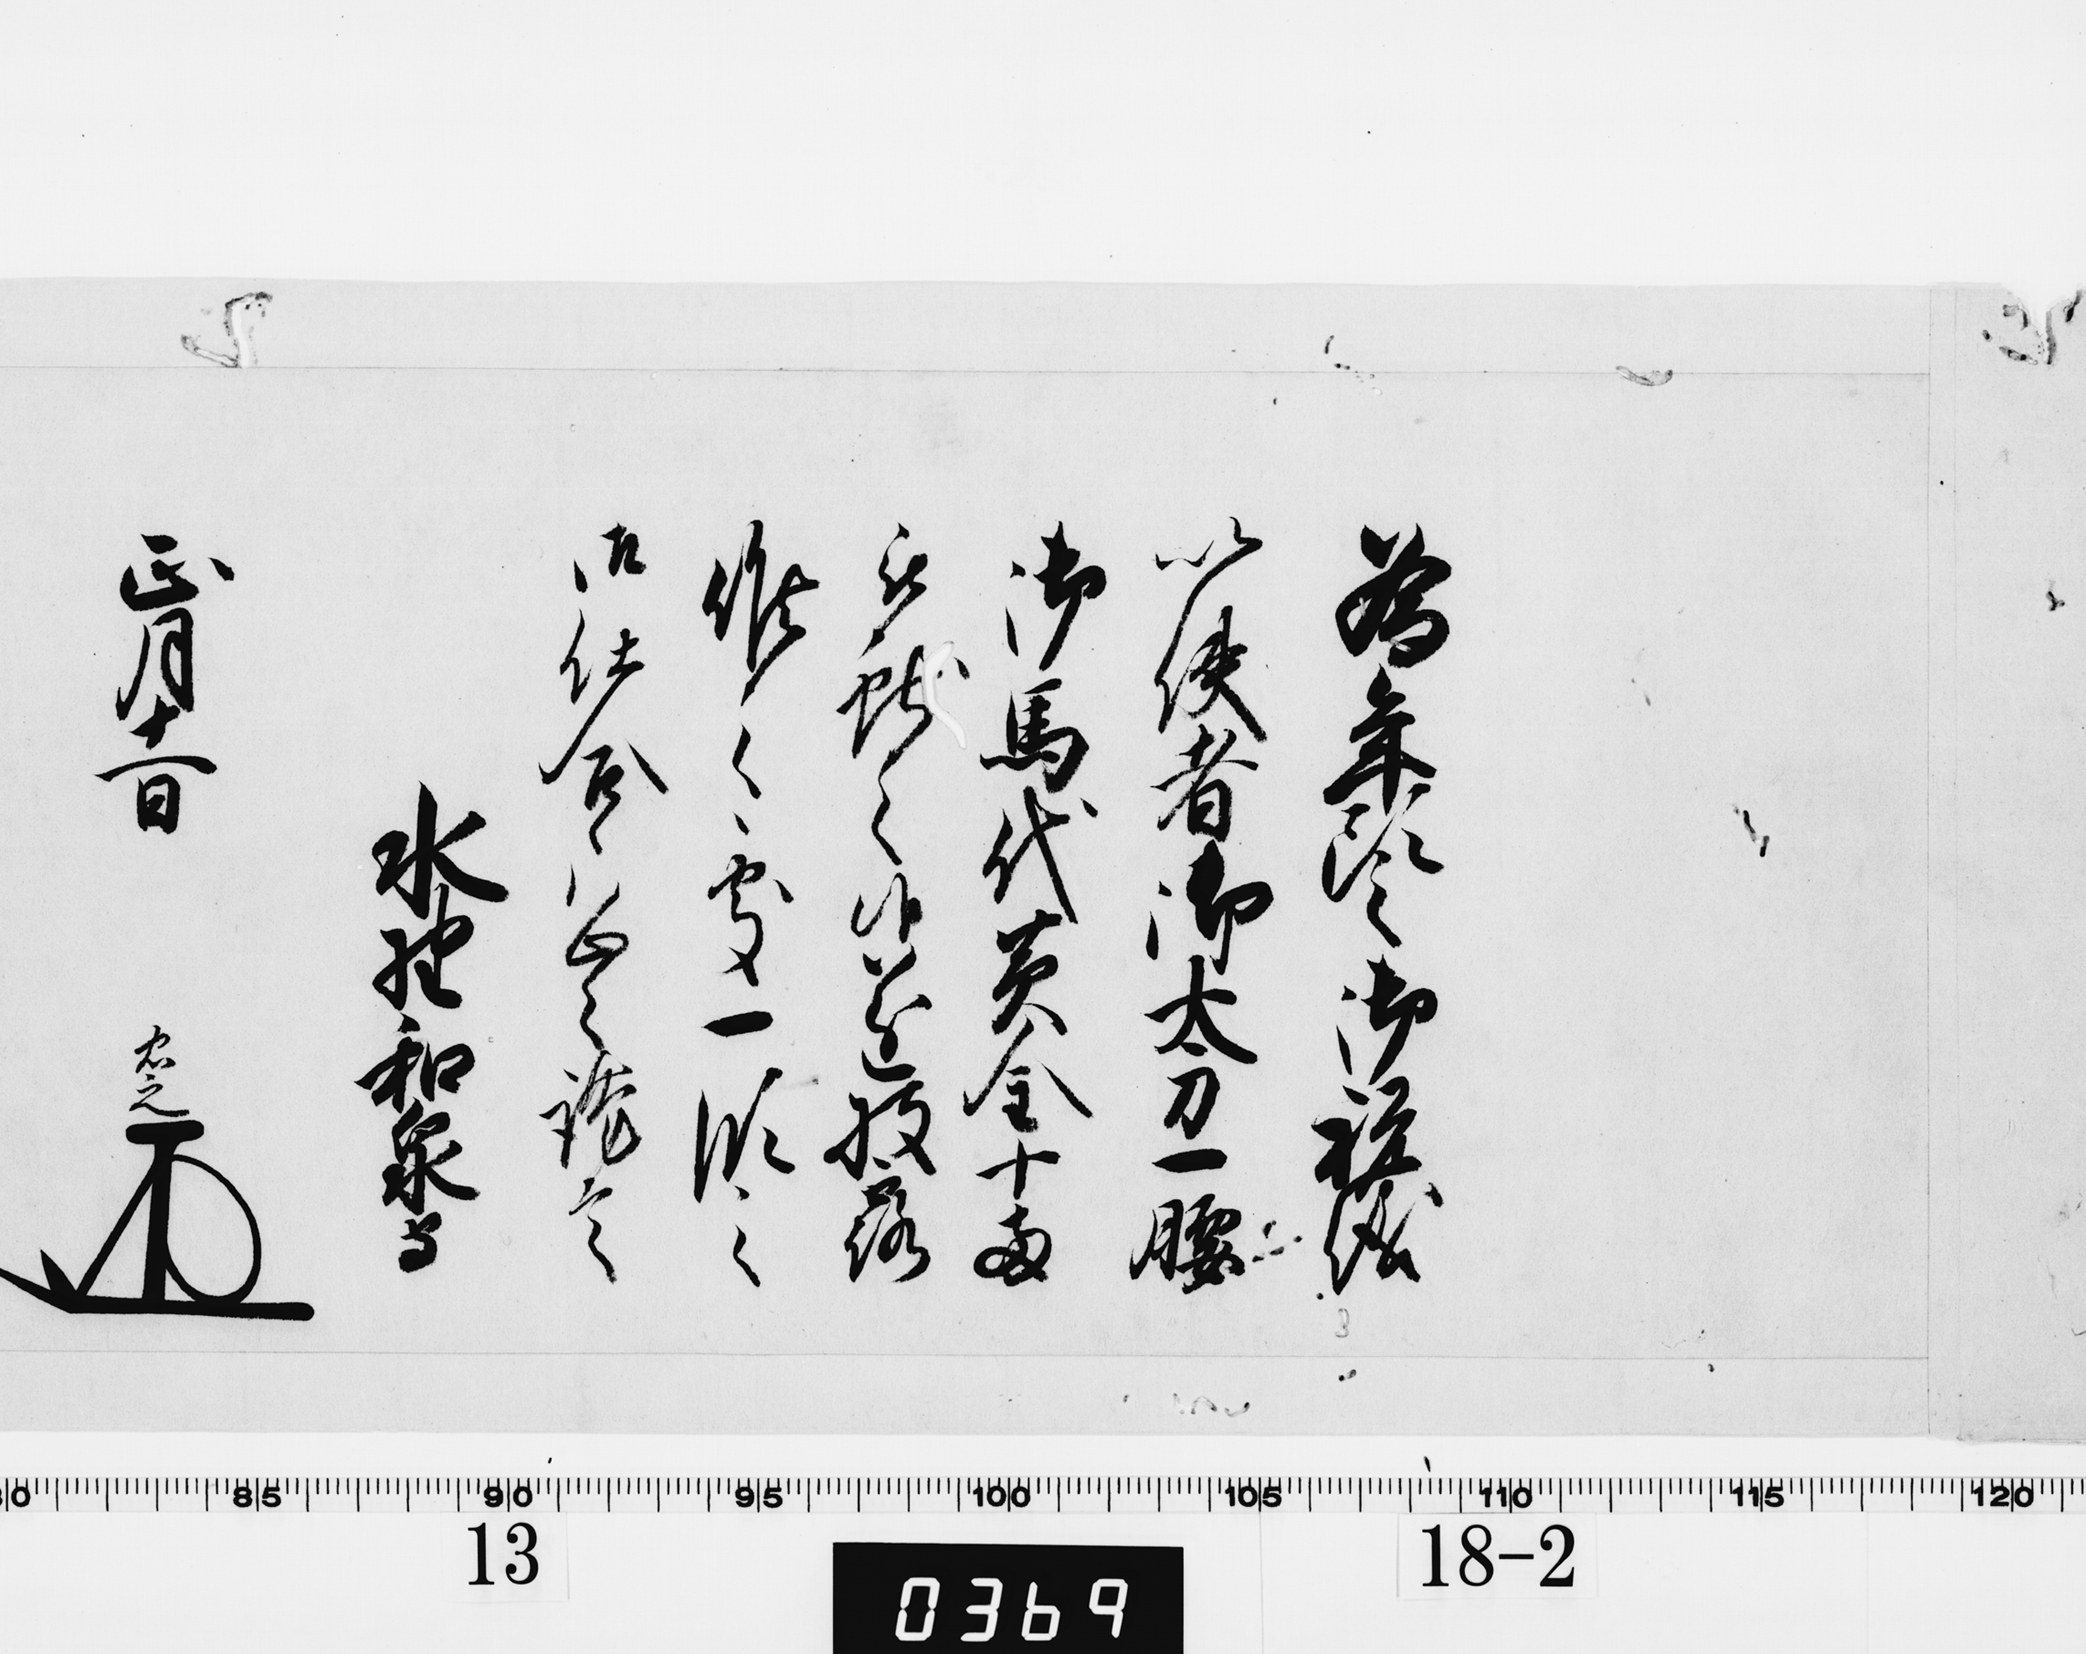 為年頭之御祝儀
以使者御太刀一腰
御馬代黄金十両
被献之遂披露
候之處一段之
御仕合候恐々謹言
水野和泉守
正月十一日 忠之
80 85 90 95 100 105 110 115 120
13 0369 18-2